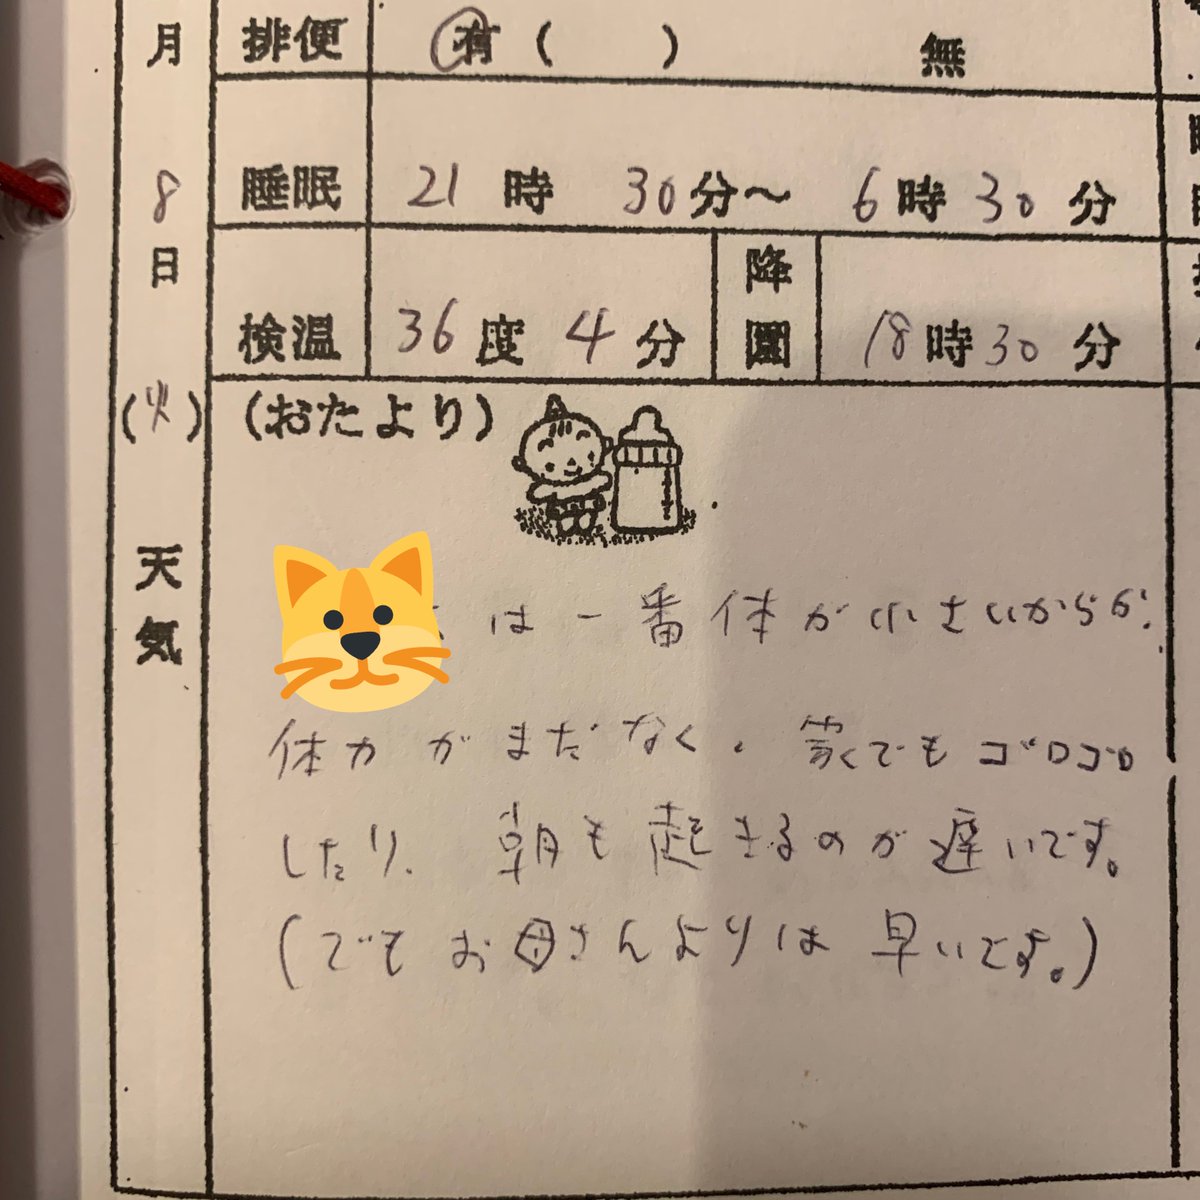 月 排便 有 ( ) 無
8 睡眠 21 時 30 分〜 6 時 30 分
日 検温 36 度 4 分 降園 18 時 30 分
(火) (おたより)
天気
は一番体が小さいからか、
体力がまだなく、家でもゴロゴロ
したり、朝も起きるのが遅いです。
(でもお母さんよりは早いです。)